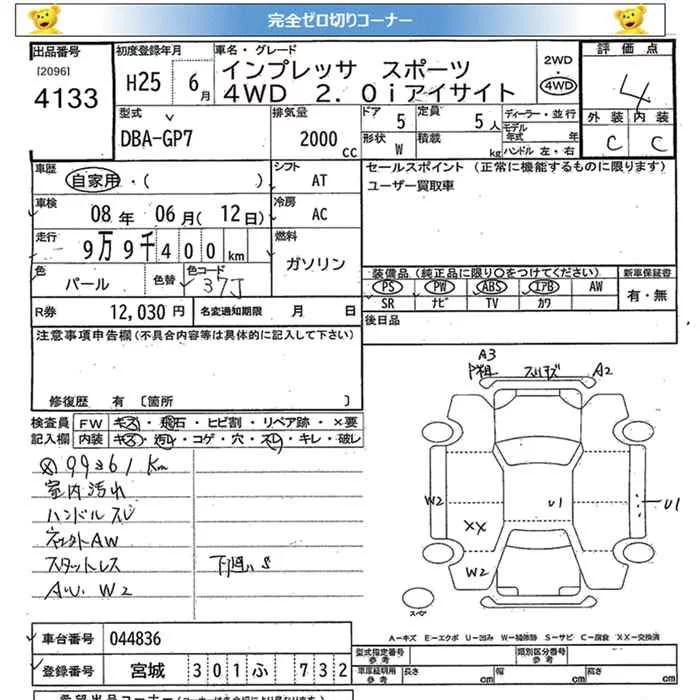 完全ゼロ切りコーナー
出品番号 初度登録年月 車名・グレード 評価点
[2096] H25 6月 インプレッサ スポーツ 2WD
4133 4WD 2.0iアイサイト 4WD 4
型式 排気量 ドア 5 定員 5人 ディーラー・並行 外装 内装
DBA-GP7 2000cc 形状 W 積載 kg モデル年式 年 C C
ハンドル 左・右
車歴 自家用・( ) シフト AT セールスポイント (正常に機能するものに限ります)
ユーザー買取車
車検 08年 06月(12日) 冷房 AC
走行 9万9千400km 燃料
ガソリン
色 パール 色替 色コード 37J 装備品(純正品に限り○をつけてください) 新車保証書
PS PW ABS エアB AW 有・無
SR ナビ TV カワ
R券 12,030円 名変通知期限 月 日
後日品
注意事項申告欄(不具合内容等は具体的に記入して下さい)
修復歴 有 〔箇所 〕
A3
スリキズ A2
検査員 FW キズ・飛石・ヒビ割・リペア跡・×要
記入欄 内装 キズ・汚レ・コゲ・穴・スレ・キレ・破レ
99361km
室内汚れ
ハンドルスレ
W2 U1 U1
XX
AW
スタットレス 下廻りS
W2
W2
スペア
A-キズ E-エクボ U-凹み W-補修跡 S-サビ C-腐食 XX-交換済
車台番号 044836
型式指定番号 参考 類別区分番号 参考
登録番号 宮城 301 ふ 732
車庫証明用 参考 長さ cm 幅 cm 高さ cm